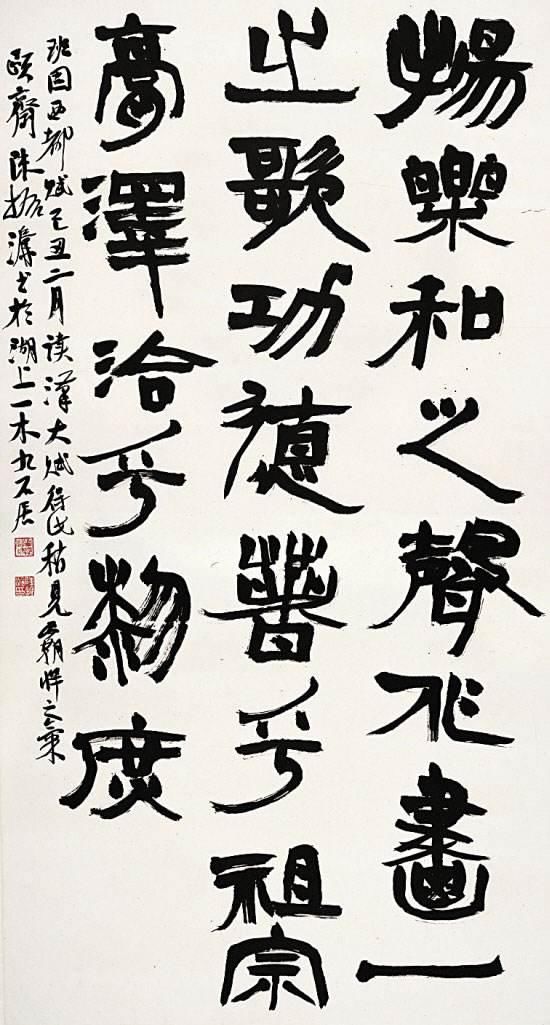 揚樂和之聲作畫一
之歌功德著乎祖宗
膏澤洽乎黎庶
班固西都赋己丑二月读漢大赋得此稍見霸悍之氣
頤齋陳振濂书於湖上一木九石居